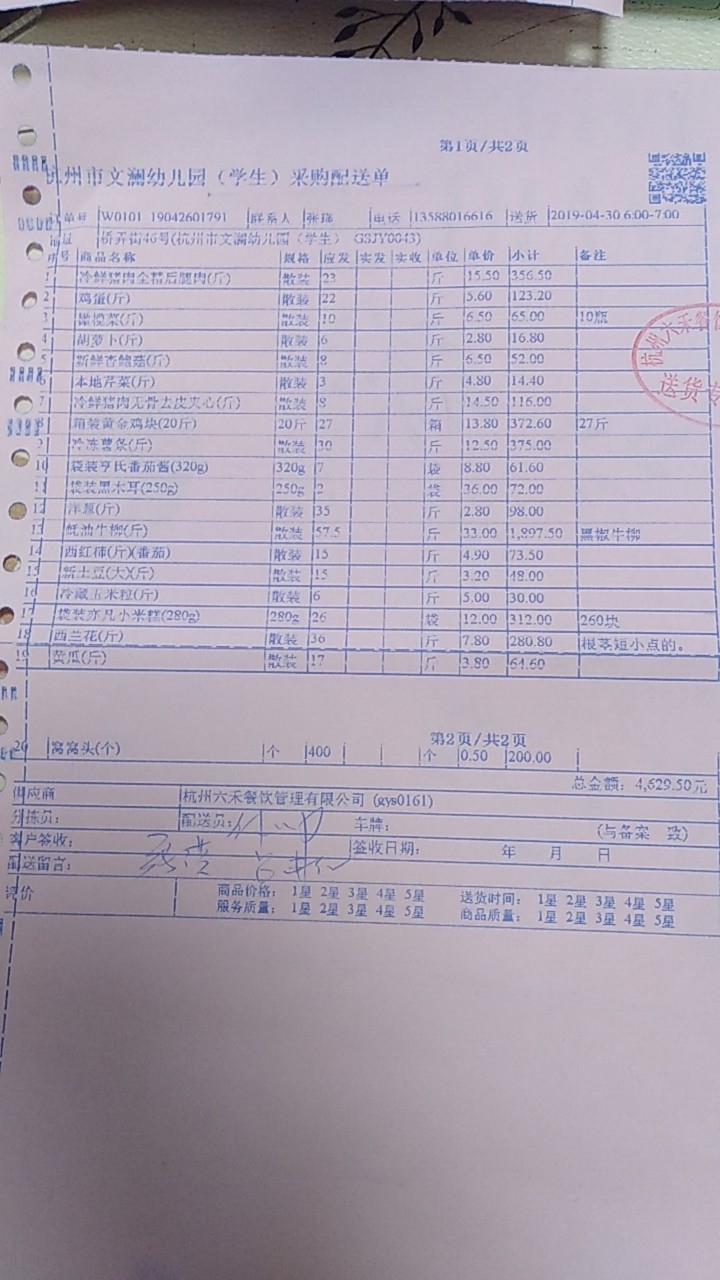 第1页/共2页
杭州市文澜幼儿园（学生）采购配送单
订单号 W0101 19042601791 联系人 张 电话 13588016616 送货 2019-04-30 6:00-7:00
地址 桥弄街46号(杭州市文澜幼儿园（学生） GSJY0043)
序号 商品名称 规格 应发 实发 实收 单位 单价 小计 备注
1 冷鲜猪肉全精后腿肉(斤) 散装 23 斤 15.50 356.50
2 鸡蛋(斤) 散装 22 斤 5.60 123.20
3 橄榄菜(斤) 散装 10 斤 6.50 65.00 10瓶
4 胡萝卜(斤) 散装 6 斤 2.80 16.80
5 新鲜杏鲍菇(斤) 散装 8 斤 6.50 52.00
6 本地芹菜(斤) 散装 3 斤 4.80 14.40
7 冷鲜猪肉无骨去皮夹心(斤) 散装 8 斤 14.50 116.00
8 箱装黄金鸡块(20斤) 20斤 27 箱 13.80 372.60 27斤
9 冷冻薯条(斤) 散装 30 斤 12.50 375.00
10 袋装亨氏番茄酱(320g) 320g 7 袋 8.80 61.60
11 袋装黑木耳(250g) 250g 2 袋 36.00 72.00
12 洋葱(斤) 散装 35 斤 2.80 98.00
13 蚝油牛柳(斤) 散装 57.5 斤 33.00 1,897.50 黑椒牛柳
14 西红柿(斤)(番茄) 散装 15 斤 4.90 73.50
15 新土豆(大)(斤) 散装 15 斤 3.20 48.00
16 冷藏玉米粒(斤) 散装 6 斤 5.00 30.00
17 袋装亦凡小米糕(280g) 280g 26 袋 12.00 312.00 260块
18 西兰花(斤) 散装 36 斤 7.80 280.80 根茎短小点的。
19 黄瓜(斤) 散装 17 斤 3.80 64.60
杭州六禾餐饮
送货专
第2页/共2页
20 窝窝头(个) 个 400 个 0.50 200.00
总金额：4,629.50元
供应商 杭州六禾餐饮管理有限公司 (gys0161)
分拣员： 配送员： 车牌： (与备案一致)
客户签收： 签收日期： 年 月 日
配送留言：
评价 商品价格： 1星 2星 3星 4星 5星 送货时间： 1星 2星 3星 4星 5星
服务质量： 1星 2星 3星 4星 5星 商品质量： 1星 2星 3星 4星 5星